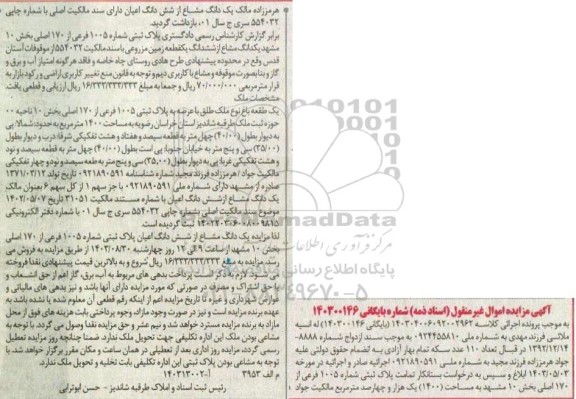 آگهی مزایده اموال غیرمنقول (اسناد ذمه) شماره بایگانی ۱۴۰۳۰۰۱۴۶
به موجب پرونده اجرائی کلاسه ۱۴۰۳۰۴۰۰۶۰۹۲۰۰۲۹۶۲ (بایگانی ۱۴۰۳۰۰۱۴۶) له انسیه
ملائی فرزند مهدی به شماره ملی ۰۹۲۴۴۵۵۸۱۰ به موجب سند ازدواج شماره ۸۸۸۸-
۱۳۹۲/۱۲/۱۴ در قبال تعداد ۱۱۰ عدد سکه تمام بهار آزادی به انضمام حقوق دولتی علیه
جواد هرمززاده فرزند مجید به شماره ملی ۰۹۲۱۸۹۰۵۹۱ اجرائیه صادر و اجرائیه در مورخه
۱۴۰۳/۰۵/۰۳ ابلاغ و سپس به درخواست بستانکار تمامت پلاک ثبتی شماره ۱۰۰۵ فرعی از
۱۷۰ اصلی بخش ۱۰ مشهد به مساحت (۱۴۰۰) یک هزار و چهارصد مترمربع مالکیت جواد
هرمززاده مالک یک دانگ مشاع از شش دانگ اعیان دارای سند مالکیت اصلی با شماره چاپی
۵۵۴۰۳۲ سری ج سال ۰۱، بازداشت گردید.
برابر گزارش کارشناس رسمی دادگستری پلاک ثبتی شماره ۱۰۰۵ فرعی از ۱۷۰ اصلی بخش ۱۰
مشهد یکدانگ مشاع از ششدانگ یکقطعه زمین مزروعی با سند مالکیت ۵۵۴۰۳۲ از موقوفات آستان
قدس وقع در محدوده پیشنهادی طرح هادی روستای چاه خاصه و فاقد هرگونه امتیاز آب و برق و
گاز و بنا بصورت موقوفه و مشاع با کاربری دیم و توجه به قانون منع تغییر کاربری اراضی و رکود بازار به
قرار مترمربعی ۷۰/۰۰۰/۰۰۰ ریال و جمعا به مبلغ ۱۶/۳۳۲/۳۳۳/۳۳۳ ریال ارزیابی و قطعی یافت.
مشخصات ملک
یک قطعه باغ نوع ملک طلق با عرصه به پلاک ثبتی ۱۰۰۵ فرعی از ۱۷۰ اصلی بخش ۱۰ ناحیه ۰۰
حوزه ثبت ملک طرقبه شاندیز استان خراسان رضوی به مساحت ۱۴۰۰ مترمربع به حدود شمالا: پی
به دیوار بطول (۴۰/۰۰) چهل متر به قطعه سیصد و هفتاد و هشت تفکیکی شرقا: درب و دیوار بطول
(۳۵/۰۰) سی و پنج متر به خیابان جنوبا: پی است بطول (۴۰/۰۰) چهل متر به قطعه سیصد و نود
و هشت تفکیکی غربا: پی به دیوار بطول (۳۵/۰۰) سی و پنج متر به قطعه سیصد و نود و چهار تفکیکی
مالکیت جواد / هرمززاده فرزند مجید شماره شناسنامه ۰۹۲۱۸۹۰۵۹۱ تاریخ تولد ۱۳۷۱/۰۲/۱۳
صادره از مشهد دارای شماره ملی ۰۹۲۱۸۹۰۵۹۱ با جز سهم ۱ از کل سهم ۶ بعنوان مالک
یک دانگ مشاع از شش دانگ اعیان با شماره مستند مالکیت ۳۱۰۵۱ تاریخ ۱۴۰۲/۰۵/۰۷
موضوع سند مالکیت اصلی بشماره چاپی ۵۵۴۰۳۲ سری ج سال ۰۱ با شماره دفتر الکترونیکی
ثبت گردیده است.
لذا مزایده یک دانگ مشاع از شش دانگ اعیان پلاک ثبتی شماره ۱۰۰۵ فرعی از ۱۷۰ اصلی
بخش ۱۰ مشهد از ساعت ۹ الی ۱۲ روز چهارشنبه ۱۴۰۳/۰۸/۳۰ از طریق مزایده به فروش می
رسد. مزایده به مبلغ ۱۶/۳۳۲/۳۳۳/۳۳۳ ریال شروع و به بالاترین قیمت پیشنهادی نقدا فروخته
می شود. لازم به ذکر است پرداخت بدهی های مربوط به آب، برق، گاز اعم از حق انشعاب و
یا حق اشتراک و مصرف در صورتی که مورد مزایده دارای آنها باشد و نیز بدهی های مالیاتی و
عوارض شهرداری و غیره تا تاریخ مزایده اعم از اینکه رقم قطعی آن معلوم شده یا نشده باشد به
عهده برنده مزایده است و نیز در صورت وجود مازاد، وجوه پرداختی بابت هزینه های فوق از محل
مازاد به برنده مزایده مسترد خواهد شد و نیم عشر و حق مزایده نقدا وصول می گردد. با توجه به
مشاعی بودن ملک این اداره تکلیفی جهت تحویل ملک ندارد. ضمنا چنانچه روز مزایده تعطیل
رسمی گردد، مزایده روز اداری بعد از تعطیلی در همان ساعت و مکان مقرر برگزار خواهد شد. با
توجه به مشاعی بودن پلاک ثبتی این اداره تکلیفی بابت تخلیه و تحویل ملک ندارد.
م الف ۳۹۵۳ ۱۴۰۳۱۳۰۰۲-آ
رئیس ثبت اسناد و املاک طرقبه شاندیز - حسن ابوترابی